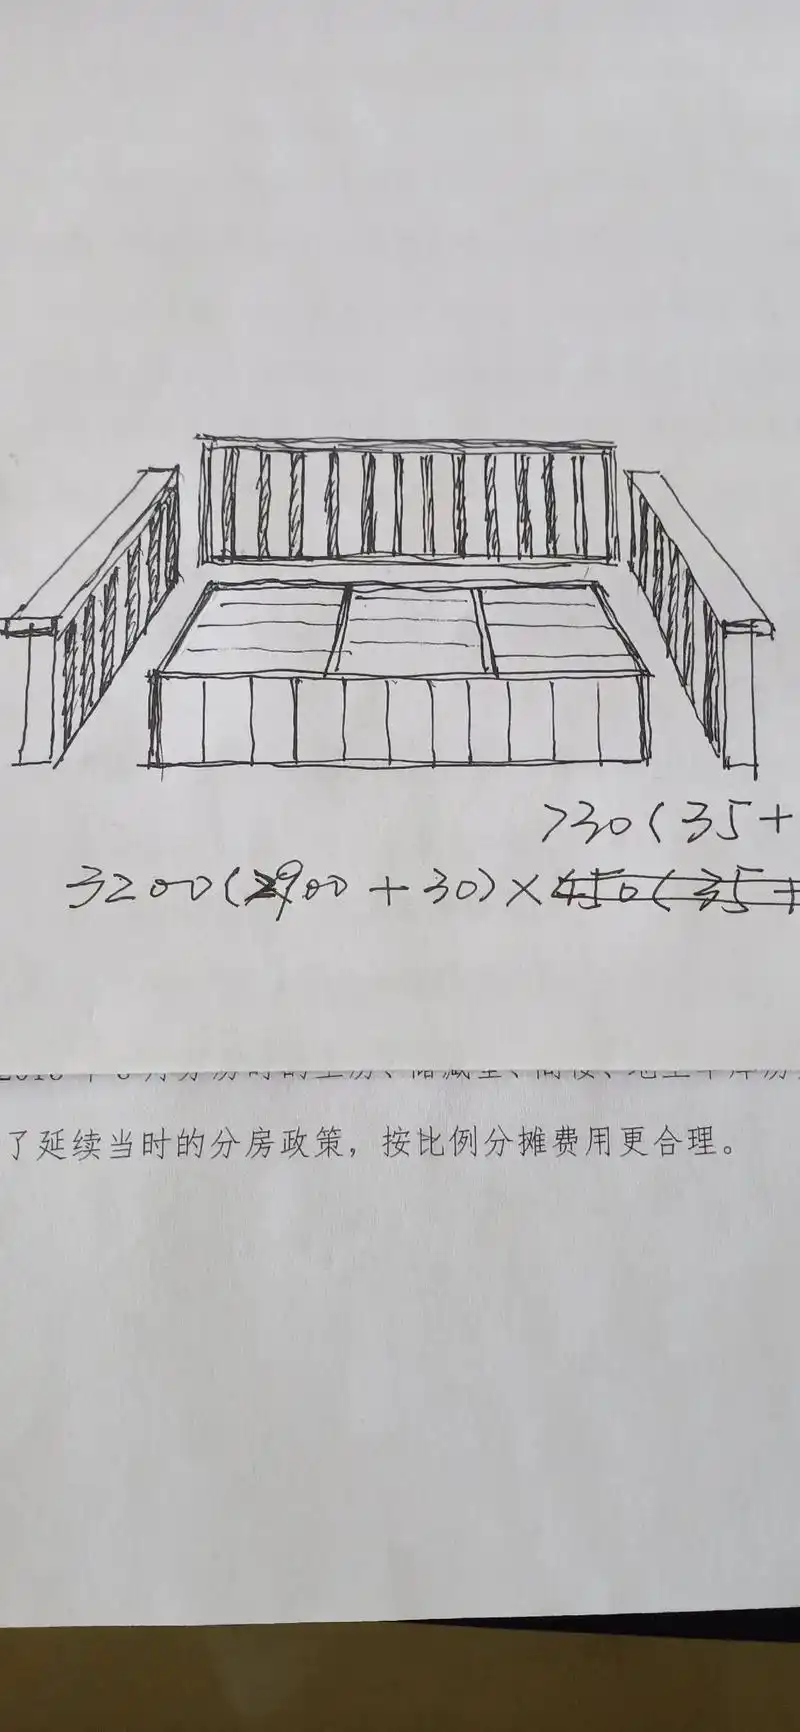 730(35+
3200(2900+30)×450(35+
了延续当时的分房政策，按比例分摊费用更合理。